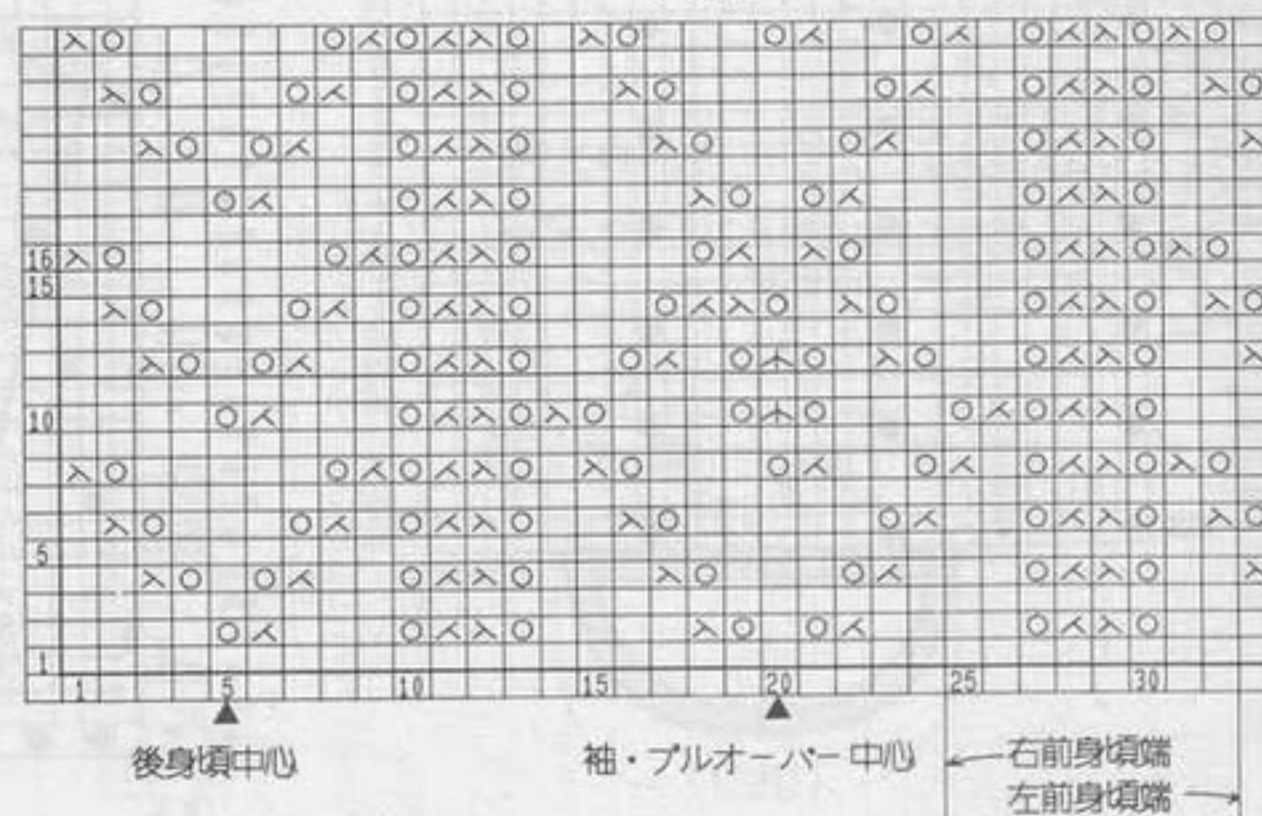 16
15
10
5
1
1 5 10 15 20 25 30
後身頃中心
袖・プルオーバー中心
右前身頃端
左前身頃端